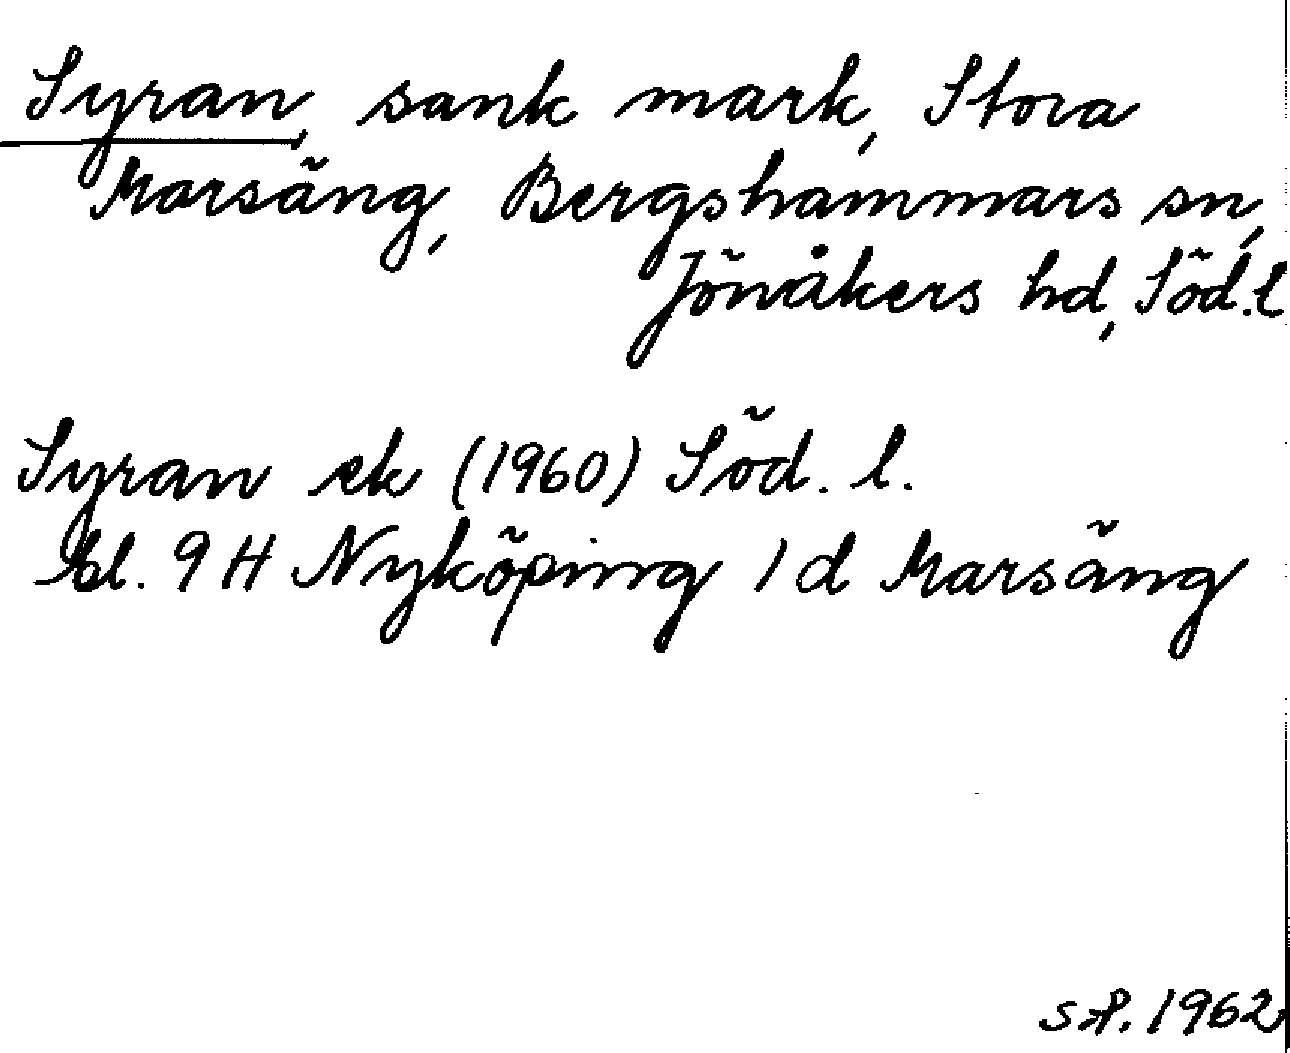 Syran, sank mark, Stora
Marsäng, Bergshammars sn,
Jönåkers hd, Söd.l
Syran ek (1960) Söd. l.
bl. 9 H Nyköping 1 d Marsäng
1962